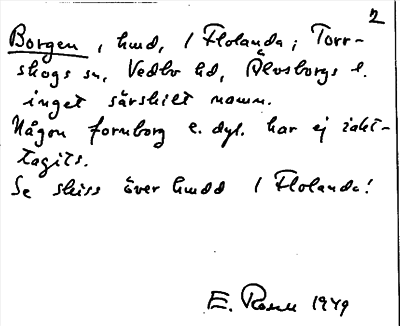 2
Borgen, hmd, 1 Flolanda; Torr-
skogs sn, Vedbo hd, Älvsborgs l.
inget särskilt namn.
Någon fornborg e. dyl. har ej iakt-
tagits.
Se skiss över hmdd 1 Flolanda!
E. Rosell 1949